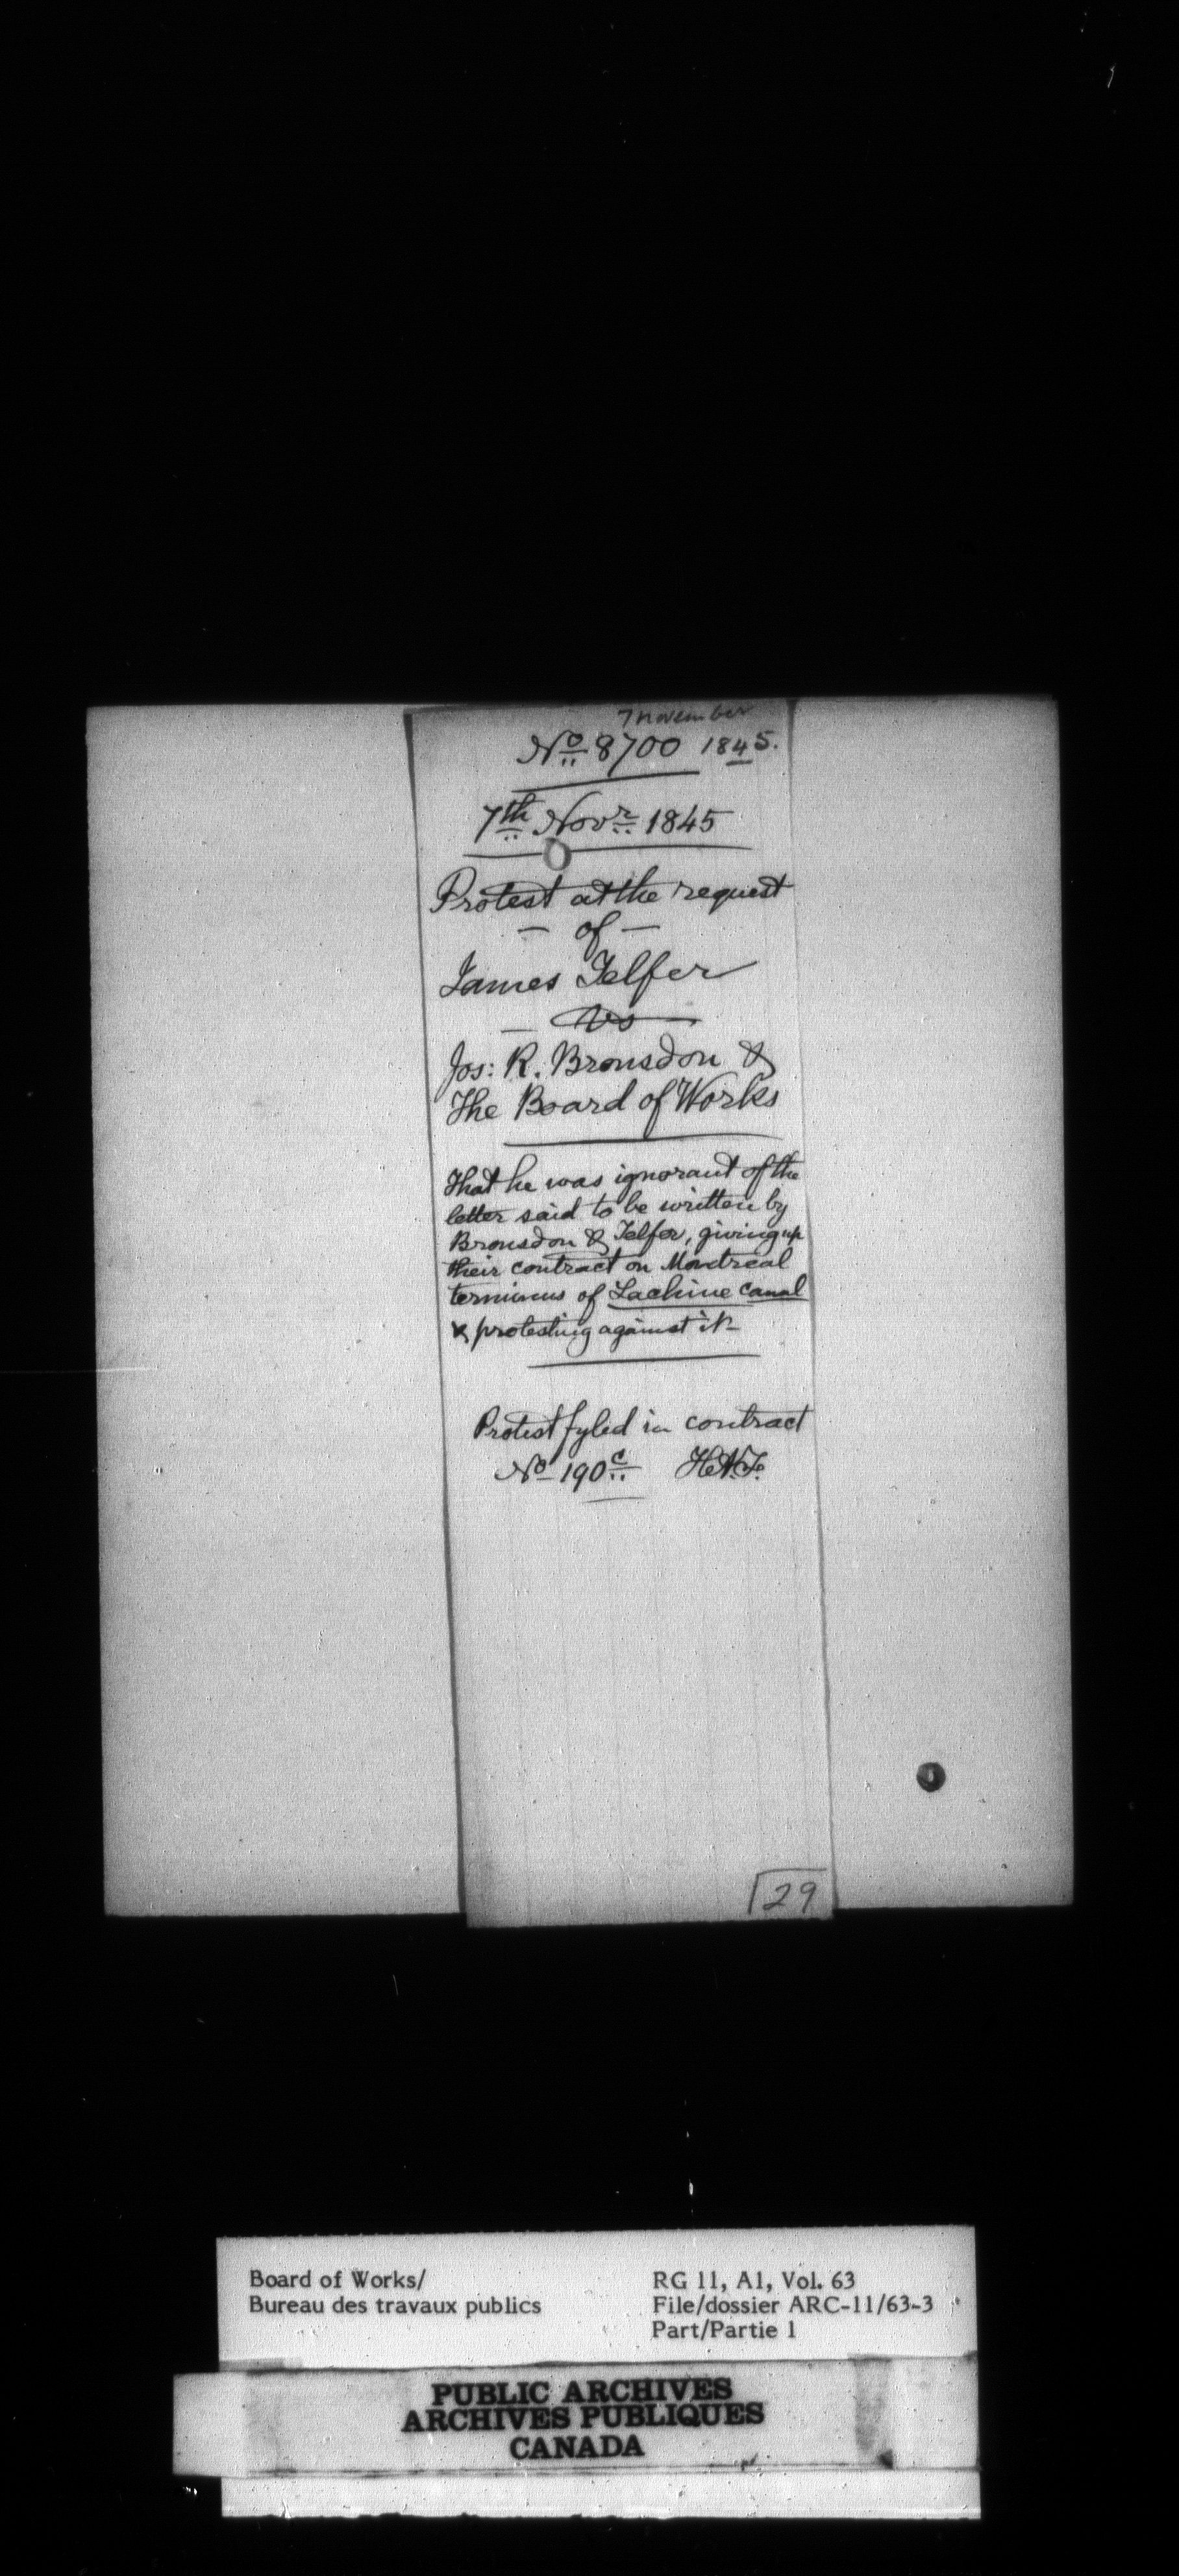 7 November
No 8700 1845.
7th Novr 1845
Protest at the request
— of —
James Telfer
— vs —
Jos: R. Bronsdon &
The Board of Works
That he was ignorant of the
letter said to be written by
Bronsdon & Telfer, giving up
their contract on Montreal
terminus of Lachine Canal
& protesting against it—
Protest fyled in contract
No 190c
29
Board of Works/
Bureau des travaux publics
RG 11, A1, Vol. 63
File/dossier ARC-11/63-3
Part/Partie 1
PUBLIC ARCHIVES
ARCHIVES PUBLIQUES
CANADA